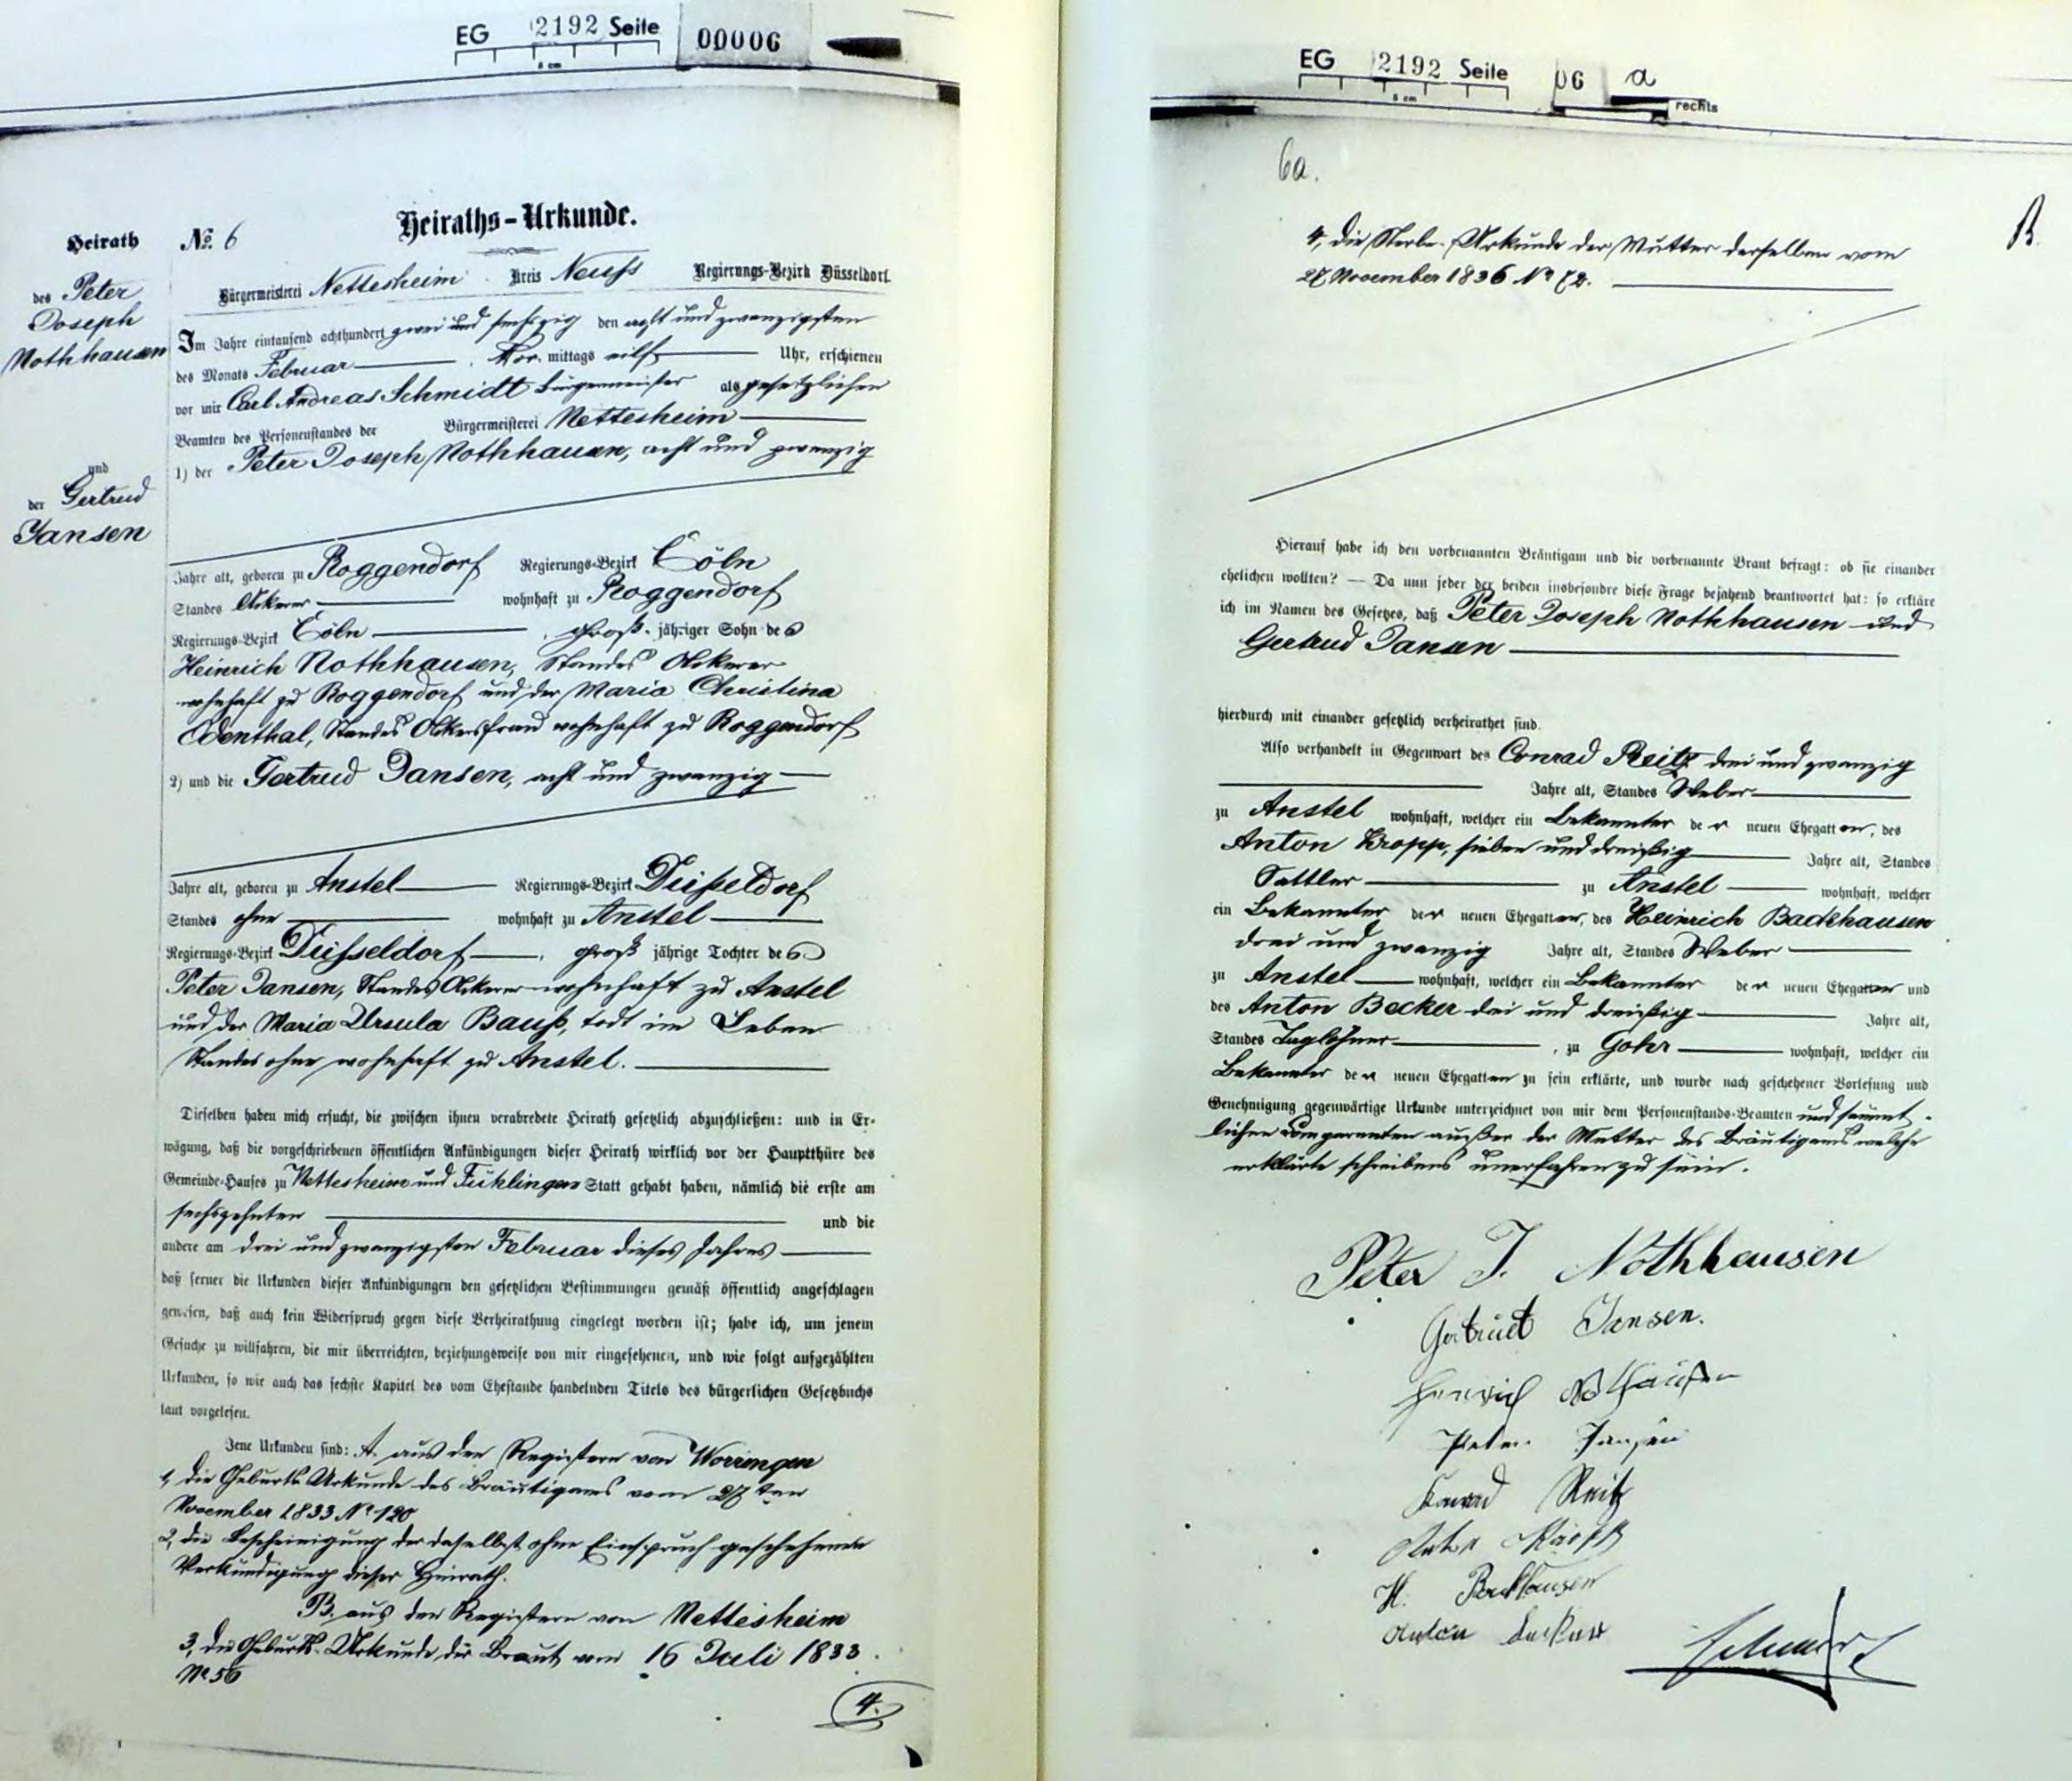 EG 2192 Seite 00006
5 cm
Heiraths-Urkunde.
Heirath No. 6
des Peter
Joseph
Nothhausen
und
der Gertrud
Jansen
Bürgermeisterei Nettesheim Kreis Neuss Regierungs-Bezirk Düsseldorf.
Im Jahre eintausend achthundert zwei und sechszig den acht und zwanzigsten
des Monats Februar, Vor-mittags eilf Uhr, erschienen
vor mir Carl Andreas Schmidt Bürgermeister als gesetzlichen
Beamten des Personenstandes der Bürgermeisterei Nettesheim
1) der Peter Joseph Nothhausen, acht und zwanzig
Jahre alt, geboren zu Roggendorf Regierungs-Bezirk Cöln
Standes Ackerer wohnhaft zu Roggendorf
Regierungs-Bezirk Cöln, groß-jähriger Sohn des
Heinrich Nothhausen, Standes Ackerer
wohnhaft zu Roggendorf und der Maria Christina
Odenthal, Standes Ackersfrau wohnhaft zu Roggendorf
2) und die Gertrud Jansen, acht und zwanzig
Jahre alt, geboren zu Anstel Regierungs-Bezirk Düsseldorf
Standes ohne wohnhaft zu Anstel
Regierungs-Bezirk Düsseldorf, groß jährige Tochter des
Peter Jansen, Standes Ackerer wohnhaft zu Anstel
und der Maria Ursula Bauß, todt im Leben
Standes ohne wohnhaft zu Anstel.
Dieselben haben mich ersucht, die zwischen ihnen verabredete Heirath gesetzlich abzuschließen: und in Er-
wägung, daß die vorgeschriebenen öffentlichen Ankündigungen dieser Heirath wirklich vor der Hauptthüre des
Gemeinde-Hauses zu Nettesheim und Fühlingen Statt gehabt haben, nämlich die erste am
sechszehnten und die
andere am drei und zwanzigsten Februar dieses Jahres
daß ferner die Urkunden dieser Ankündigungen den gesetzlichen Bestimmungen gemäß öffentlich angeschlagen
gewesen, daß auch kein Widerspruch gegen diese Verheirathung eingelegt worden ist; habe ich, um jenem
Gesuche zu willfahren, die mir überreichten, beziehungsweise von mir eingesehenen, und wie folgt aufgezählten
Urkunden, so wie auch das sechste Kapitel des vom Ehestande handelnden Titels des bürgerlichen Gesetzbuchs
laut vorgelesen.
Jene Urkunden sind: A. aus den Registern von Worringen
1, die Geburts-Urkunde des Bräutigams vom 27ten
November 1833 No 120
2, die Bescheinigung der daselbst ohne Einspruch geschehenen
Verkündigung dieser Heirath.
B. aus den Registern von Nettesheim
3, die Geburts-Urkunde der Braut vom 16 Juli 1833.
No 56
4.
EG 2192 Seite 06 a
5 cm
rechts
6a.
B.
4, die Sterbe-Urkunde der Mutter derselben vom
27 November 1836 No 72.
Hierauf habe ich den vorbenannten Bräutigam und die vorbenannte Braut befragt: ob sie einander
ehelichen wollten? — Da nun jeder der beiden insbesondre diese Frage bejahend beantwortet hat: so erkläre
ich im Namen des Gesetzes, daß Peter Joseph Nothhausen und
Gertrud Jansen
hierdurch mit einander gesetzlich verheirathet sind.
Also verhandelt in Gegenwart des Conrad Reitz drei und zwanzig
Jahre alt, Standes Weber
zu Anstel wohnhaft, welcher ein Bekannter der neuen Ehegatten, des
Anton Kropp, sieben und dreißig Jahre alt, Standes
Sattler zu Anstel wohnhaft, welcher
ein Bekannter der neuen Ehegatten, des Heinrich Backhausen
drei und zwanzig Jahre alt, Standes Weber
zu Anstel wohnhaft, welcher ein Bekannter der neuen Ehegatten und
des Anton Becker drei und dreißig Jahre alt,
Standes Taglöhner, zu Gohr wohnhaft, welcher ein
Bekannter der neuen Ehegatten zu sein erklärte, und wurde nach geschehener Vorlesung und
Genehmigung gegenwärtige Urkunde unterzeichnet von mir dem Personenstands-Beamten und sämmt-
lichen Comparenten außer der Mutter des Bräutigams welche
erklärte schreibens unerfahren zu sein.
Peter J. Nothhausen
Gertrud Jansen.
Heinrich Nothhausen
Peter Jansen
Konrad Reitz
Anton Kropp
H. Backhausen
Anton Becker
Schmidt